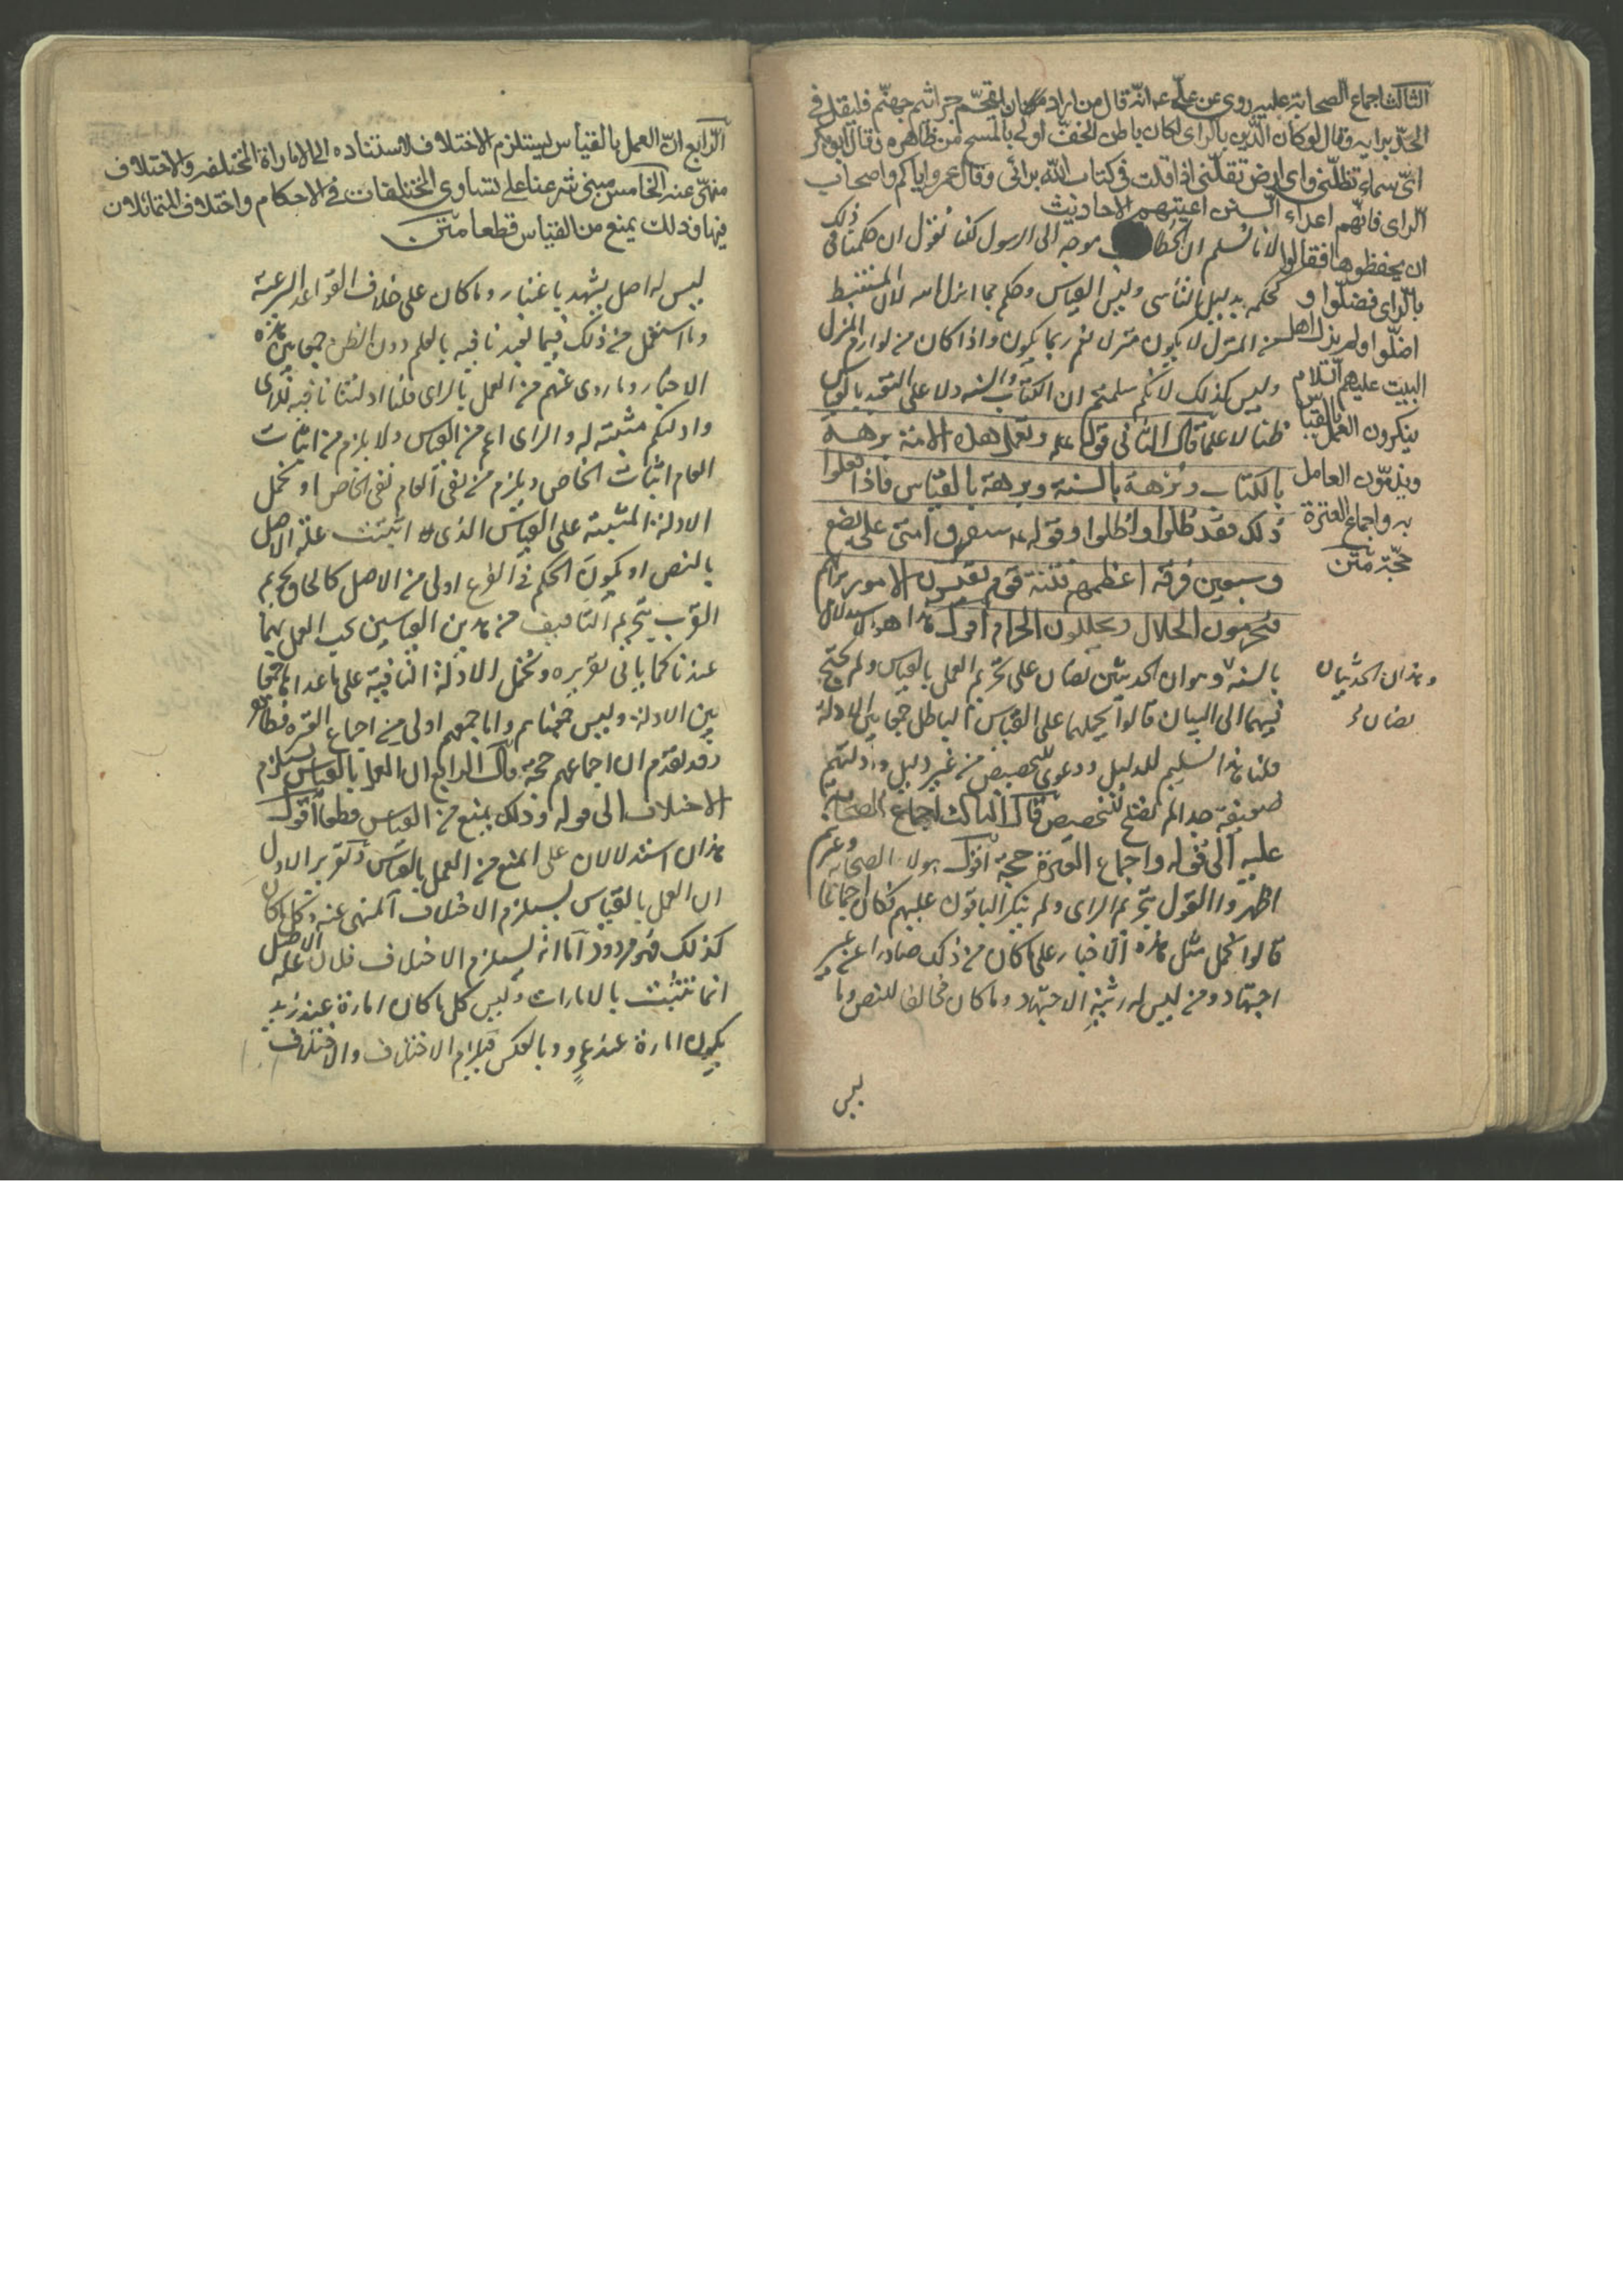 الثالث اجماع الصحابة عليه روى عن على ع انه قال من اراد ان يقتحم جراثيم جهنم فليقل في
الجد برايه وقال لو كان الدين بالراى لكان باطن الخف اولى بالمسح من ظاهره وقال ابو بكر
اى سماء تظلنى واى ارض تقلنى اذا قلت فى كتاب الله برائى وقال عمر واياكم واصحاب
الراى فانهم اعداء السنن اعيتهم الاحاديث
ان يحفظوها فقالوا
بالراى فضلوا و
اضلوا ولم يزل اهل
البيت عليهم السلام
ينكرون العمل بالقياس
ويذمون العامل
به واجماع العترة
حجة متن
لانا نسلم ان الخطاب موجه الى الرسول لكنا نقول ان حكمنا فى ذلك
كحكمه بدليل التأسى وليس القياس وحكم بما انزل الله لان المستنبط
من المنزل لا يكون منزلا نعم ربما يكون واذا كان من لوازم المنزل
وليس كذلك لانكم سلمتم ان الكتاب والسنه دلا على التعبد بالقياس
ظنا لا علما قال الثانى قوله ع وتعمل هذه الامة برهة
بالكتاب وبرهة بالسنة وبرهة بالقياس فاذا فعلوا
ذلك فقد ضلوا واضلوا وقوله ع ستفترق امتى على بضع
وسبعين فرقه اعظمهم فتنة قوم يقيسون الامور برايهم
فيحرمون الحلال ويحللون الحرام اقول هذا هو الاستدلال
بالسنة وهو ان الحديثين نصان على تحريم العمل بالقياس ولم يحتج
فيهما الى البيان قالوا يحملهما على القياس الباطل جمعا بين الادلة
قلنا هذا تسليم للدليل ودعوى للتخصيص من غير دليل وادلتهم
ضعيفة جدا لم تصلح للتخصيص قال الثالث اجماع الصحابة
عليه الى قوله واجماع العترة حجة اقول هولاء الصحابه وغيرهم
اظهروا القول بتحريم الراى ولم ينكر الباقون عليهم فكان اجماعا
قالوا نحمل مثل هذه الاخبار على ما كان من ذلك صادرا عن غير
اجتهاد ومن ليس له رتبة الاجتهاد وما كان مخالفا للنص وما
ليس
وهذان الحديثان
نصان
الرابع ان العمل بالقياس يستلزم الاختلاف لاستناده الى الاماراة المختلفه والاختلاف
منهى عنه الخامس مبنى شرعنا على تساوى المختلفات فى الاحكام واختلاف المتماثلات
فيها وذلك يمنع من القياس قطعا متن
ليس له اصل يشهد باعتباره وما كان على خلاف القواعد الشرعية
وما استعمل من ذلك فيما تعبدنا فيه بالعلم دون الظن جمعا بين هذه
الاخبار وما روى عنهم من العمل بالراى قلنا ادلتنا نافيه للراى
وادلتكم مثبتة له والراى اعم من القياس ولا يلزم من اثبات
العام اثبات الخاص ويلزم من نفى العام نفى الخاص او نحمل
الادلة المثبتة على القياس الذى اثبتت علة الاصل
بالنص او يكون الحكم فى الفرع اولى من الاصل كالحاق تحريم
الضرب بتحريم التافيف من هذين القياسين يجب العمل بهما
عندنا كما ياتى تقريره ونحمل الادلة النافية على ما عداهما جمعا
بين الادلة وليس
وقد تقدم ان اجماعهم حجة قال الرابع ان العمل بالقياس يستلزم
الاختلاف الى قوله وذلك يمنع من القياس قطعا اقول
هذان استدلالان على المنع من العمل بالقياس وتقرير الاول
ان العمل بالقياس يستلزم الاختلاف المنهى عنه وكل ما كان
كذلك فهو مردود اما انه يستلزم الاختلاف فلان علة الاصل
انما تثبت بالامارات وليس كل ما كان امارة عند زيد
يكون امارة عند عمرو وبالعكس فيلزم الاختلاف والاختلاف